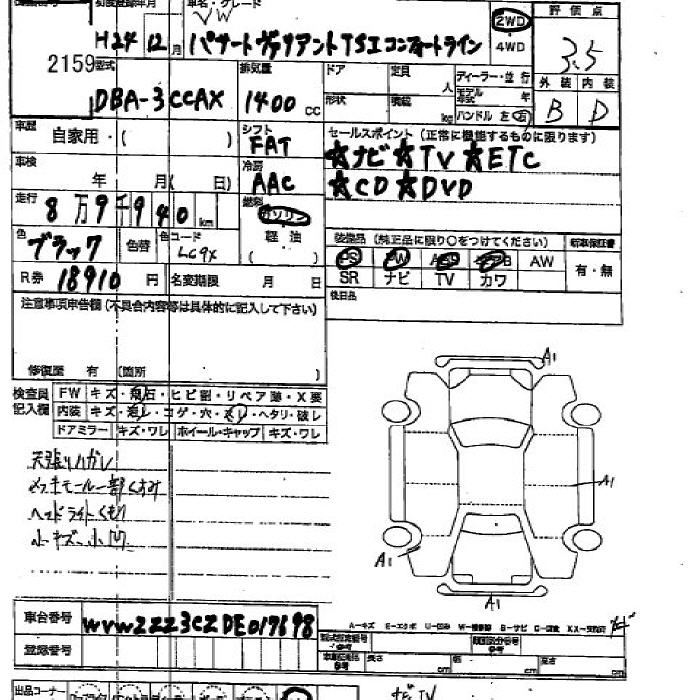 車名・グレード
VW
H24 12月 パサートヴァリアントTSIコンフォートライン 2WD
4WD
評価点
3.5
外装 内装
B D
2159
型式 排気量 ドア 定員 人 ディーラー・並行
DBA-3CCAX 1400cc 形状 積載 kg モデル年式 年
ハンドル 左 右
車歴 自家用・( ) シフト FAT
セールスポイント(正常に機能するものに限ります)
★ナビ★TV★ETC
★CD★DVD
車検 年 月( 日) 冷房 AAC
走行 8万9千940km 燃料 ガソリン
軽油
( )
色 ブラック 色替 色コード LC9X
装備品(純正品に限り○をつけてください) 新車保証書
PS PW AW 有・無
SR ナビ TV カワ
R券 18910円 名変期限 月 日
後日品
注意事項申告欄(不具合内容等は具体的に記入して下さい)
修復歴 有(箇所 )
検査員記入欄
FW キズ・飛石・ヒビ割・リペア跡・X要
内装 キズ・汚レ・コゲ・穴・スレ・ヘタリ・破レ
ドアミラー キズ・ワレ ホイール・キャップ キズ・ワレ
天張りハガレ
メッキモール一部くすみ
ヘッドライトくもり
小キズ小凹
A1
A1
A1
A1
車台番号 WVWZZZ3CZDE017698
A-キズ E-エクボ U-凹み
登録番号
型式指定番号 類別区分番号
長さ cm 幅 cm 高さ cm
出品コーナー
ナビ TV